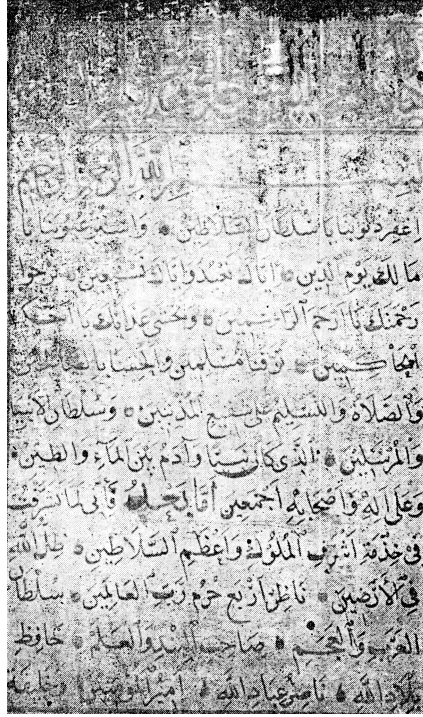 بسم الله الرحمن الرحيم
اغفر ذنوبنا يا سلطان السلاطين واستر عيوبنا يا
مالك يوم الدين اياك نعبد واياك نستعين نرجوا
رحمتك يا ارحم الراحمين ونخشى عذابك يا احكم
الحاكمين توفنا مسلمين والحقنا بالصالحين
والصلاة والتسليم على شفيع المذنبين وسلطان الانبيا
والمرسلين الذى كان نبيا وآدم بين المآء والطين
وعلى اله واصحابه اجمعين اما بعد فانى لما تشرفت
فى خدمة اشرف الملوك واعظم السلاطين ظل الله
فى الارضين ناظر اربع حرم رب العالمين سلطان
العرب والعجم صاحب السيف والعلم حافظ
بلاد الله ناصر عباد الله امير المؤمنين وخليفة